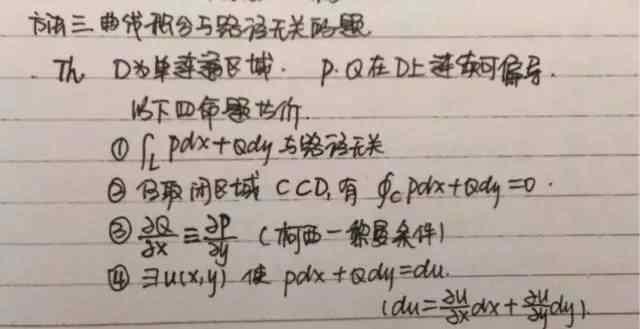 方法三 曲线积分与路径无关的题
Th D为单连通区域. P.Q在D上连续可偏导.
以下四命题均价.
① ∫_L Pdx+Qdy 与路径无关
② 任取闭区域 C⊂D, 有 ∮_C Pdx+Qdy=0.
③ ∂Q/∂x ≡ ∂P/∂y (柯西一黎曼条件)
④ ∃u(x,y) 使 pdx+Qdy=du.
(du=∂u/∂x dx+∂u/∂y dy).